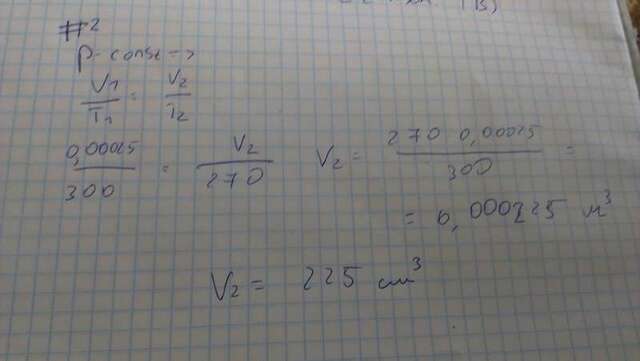 #2
p-const →
V1/T1 = V2/T2
0,00025/300 = V2/270 V2 = 270 0,00025/300 =
= 0,000225 м³
V2 = 225 см³